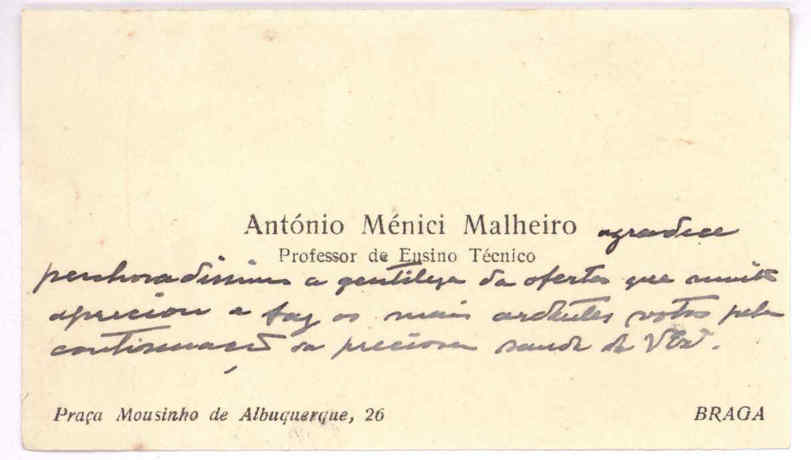 António Ménici Malheiro agradece
Professor de Ensino Técnico
penhoradissimo a gentileza da oferta que muito
apreciou e faz os mais ardentes votos pela
continuação da preciosa saude de
Praça Mousinho de Albuquerque, 26
BRAGA